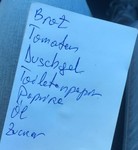 Brot
Tomaten
Duschgel
Toilettenpapier
Paprika
Öl
Zucker